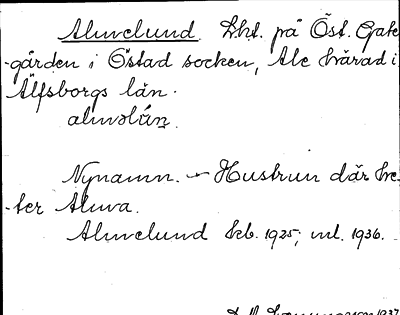 Almelund. Lht. på Öst. Gate
-gården i Östad socken, Ale härad i
Älfsborgs län.
alməlún.
Nynamn. - Hustrun där he-
-ter Alma.
Almelund beb. 1925, ml. 1936.
1937